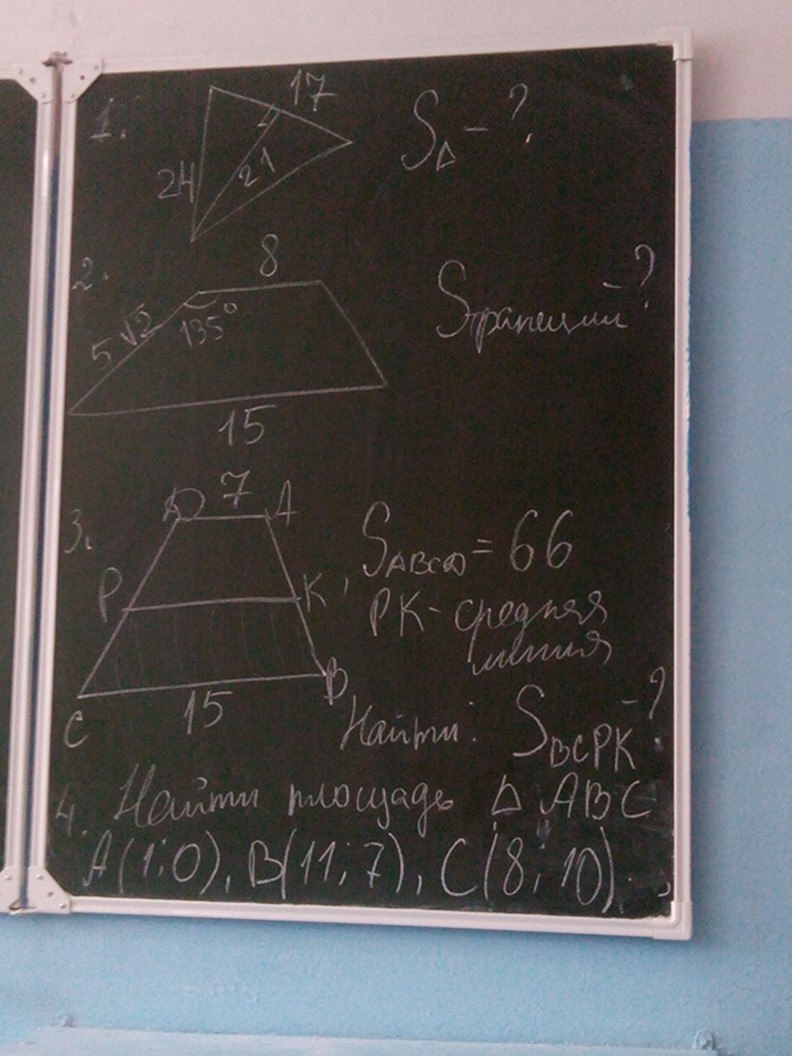 1.
17
24
21
S△ - ?
2.
8
5√2
135°
15
Sтрапеции - ?
3.
D 7 A
P K
C 15 B
SABCD = 66
PK - средняя
линия
Найти: SBCPK - ?
4. Найти площадь △ ABC
A(1;0), B(11;7), C(8;10)